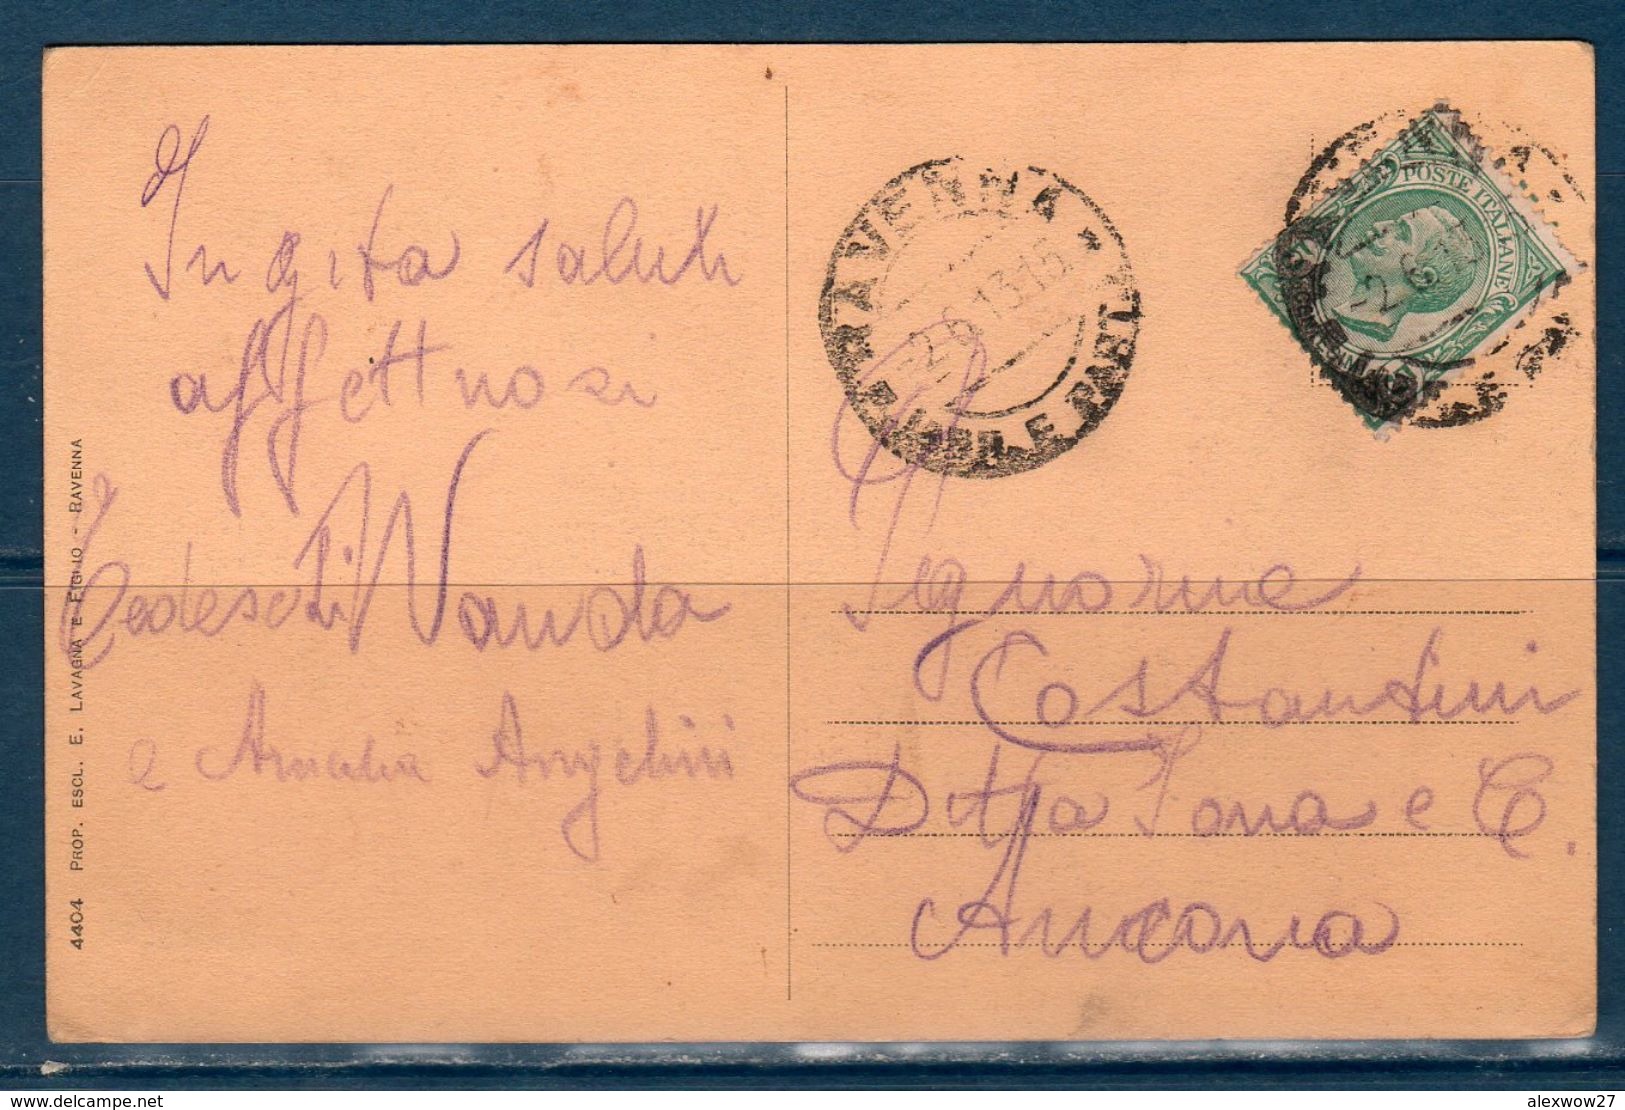 In gita saluti
affettuosi
Tedeschi Wanda
e Amalia Angelini
4404 PROP. ESCL. E. LAVAGNA E FIGLIO - RAVENNA
RAVENNA
2.6 13.15
POSTE ITALIANE
Signorine
Costantini
Ditta Iona e C.
Ancona
www.delcampe.net
alexwow27